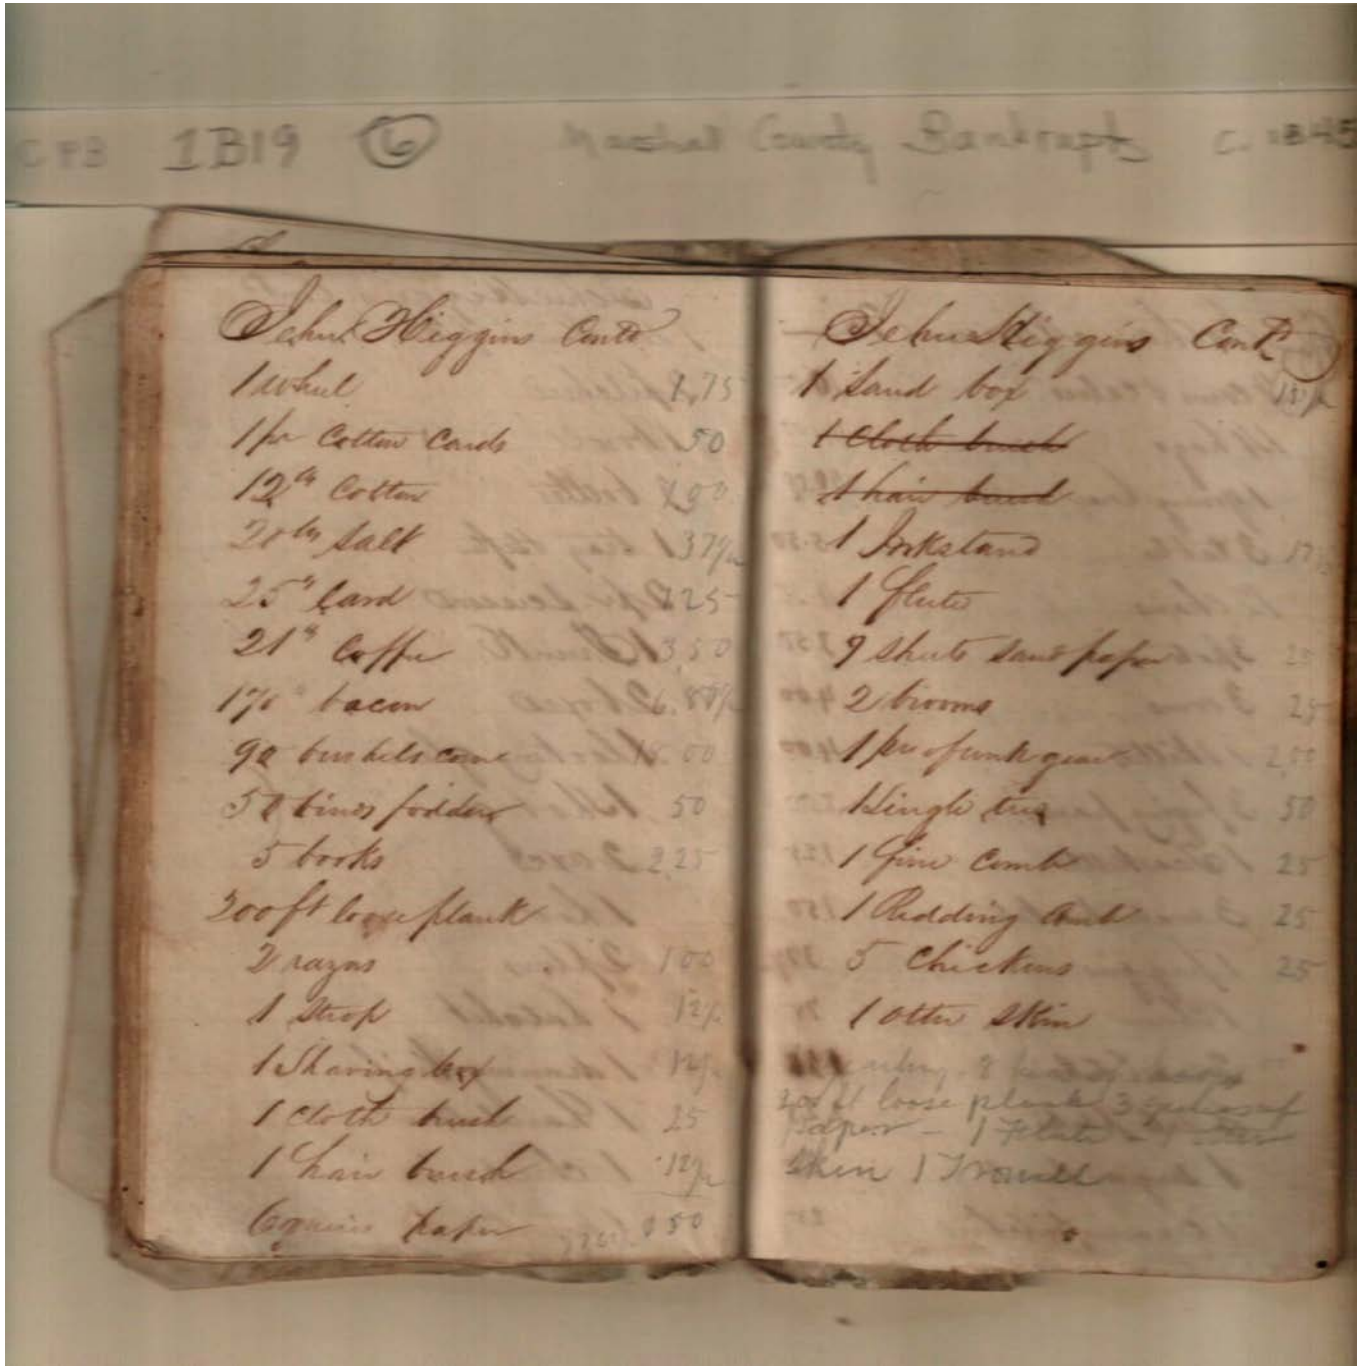 1B19 6 Marshal County Bankrupts
Jehu Higgins Contd
1 wheel 1,75
1 pr Cotton Cards 50
12 lb Cotton
20 lbs Salt 37½
25 " Lard 125
21 " Coffee 3,50
170 " bacon
90 bushels corn 18.00
50 bines fodder 50
5 books 2,25
200 ft loose plank
2 razors 1 00
1 Strop 12½
1 Shaving box 12½
1 Cloth brush 25
1 hair brush 12½
6 quires paper 50
Jehu Higgins Contd
1 Sand box 12½
1 Cloth brush
1 hair brush
1 Inkstand
1 flute
9 sheets sand paper 25
2 brooms 25
1 pr of gear 2,50
1 Single tree 50
1 fine Comb 25
1 Redding Comb 25
5 Chickens 25
1 otter skin
200 ft loose plank 3 quires of
paper - 1 Flute - 1 otter
skin 1 Trowell